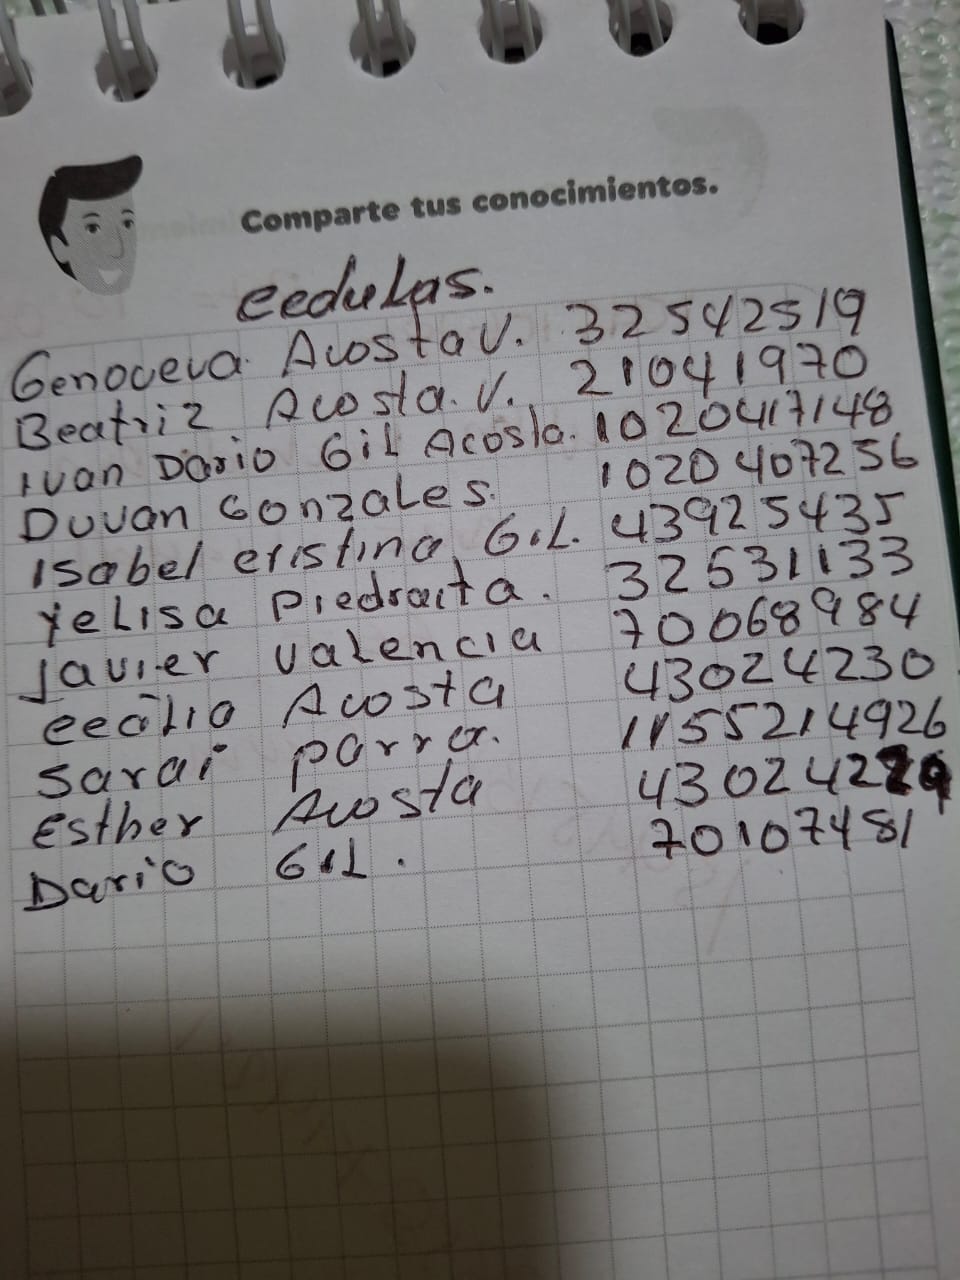 Comparte tus conocimientos.
cedulas.
Genoveva Acosta V. 32542519
Beatriz Acosta. V. 21041970
Ivan Dario Gil Acosta. 1020417148
Duvan Gonzales. 1020407256
Isabel cristina Gil. 43925435
Yelisa Piedraita. 32531133
Javier Valencia 70068984
cecilia Acosta 43024230
Sarai parra. 1155214926
Esther Acosta 43024229
Dario Gil. 70107481